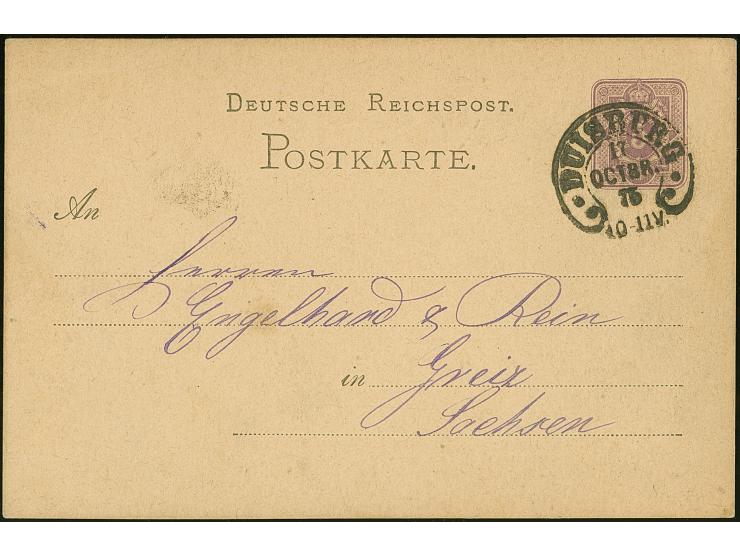 DEUTSCHE REICHSPOST.
POSTKARTE.
DUISBURG
17
OCTBR.
75
10-11V.
An
Herren
Engelhard & Rein
in Greiz
Sachsen